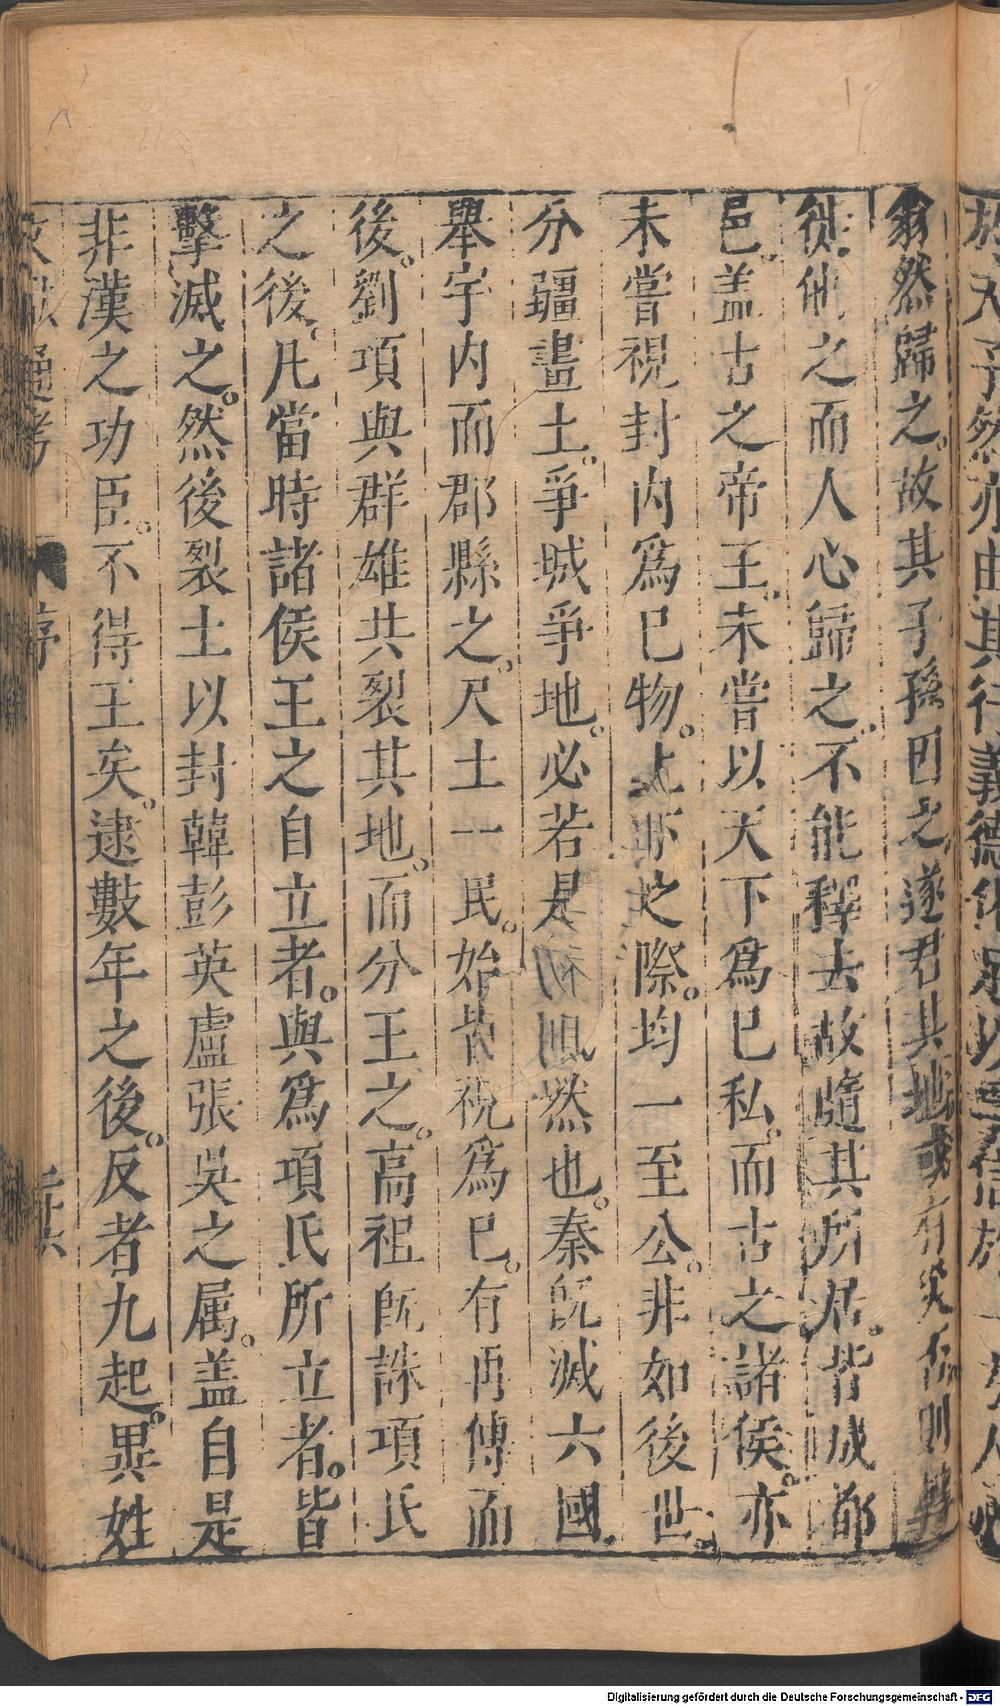 於天子然亦由其行義德化足以孚信於一方人心
翕然歸之故其子孫因之遂君其地或有災否則轉
徙他之而人心歸之不能釋去故隨其所居皆成都
邑盖古之帝王未嘗以天下爲己私而古之諸侯亦
未嘗視封内爲己物上下之際均一至公非如後世
分疆畫土爭城爭地必若是初㒺然也秦旣滅六國
舉宇内而郡縣之尺土一民始皆視爲己有再傳而
後劉項與群雄共裂其地而分王之高祖旣誅項氏
之後凡當時諸侯王之自立者與爲項氏所立者皆
擊滅之然後裂土以封韓彭英盧張吳之属盖自是
非漢之功臣不得王矣逮數年之後反者九起異姓
文獻通考 序
Digitalisierung gefördert durch die Deutsche Forschungsgemeinschaft - DFG